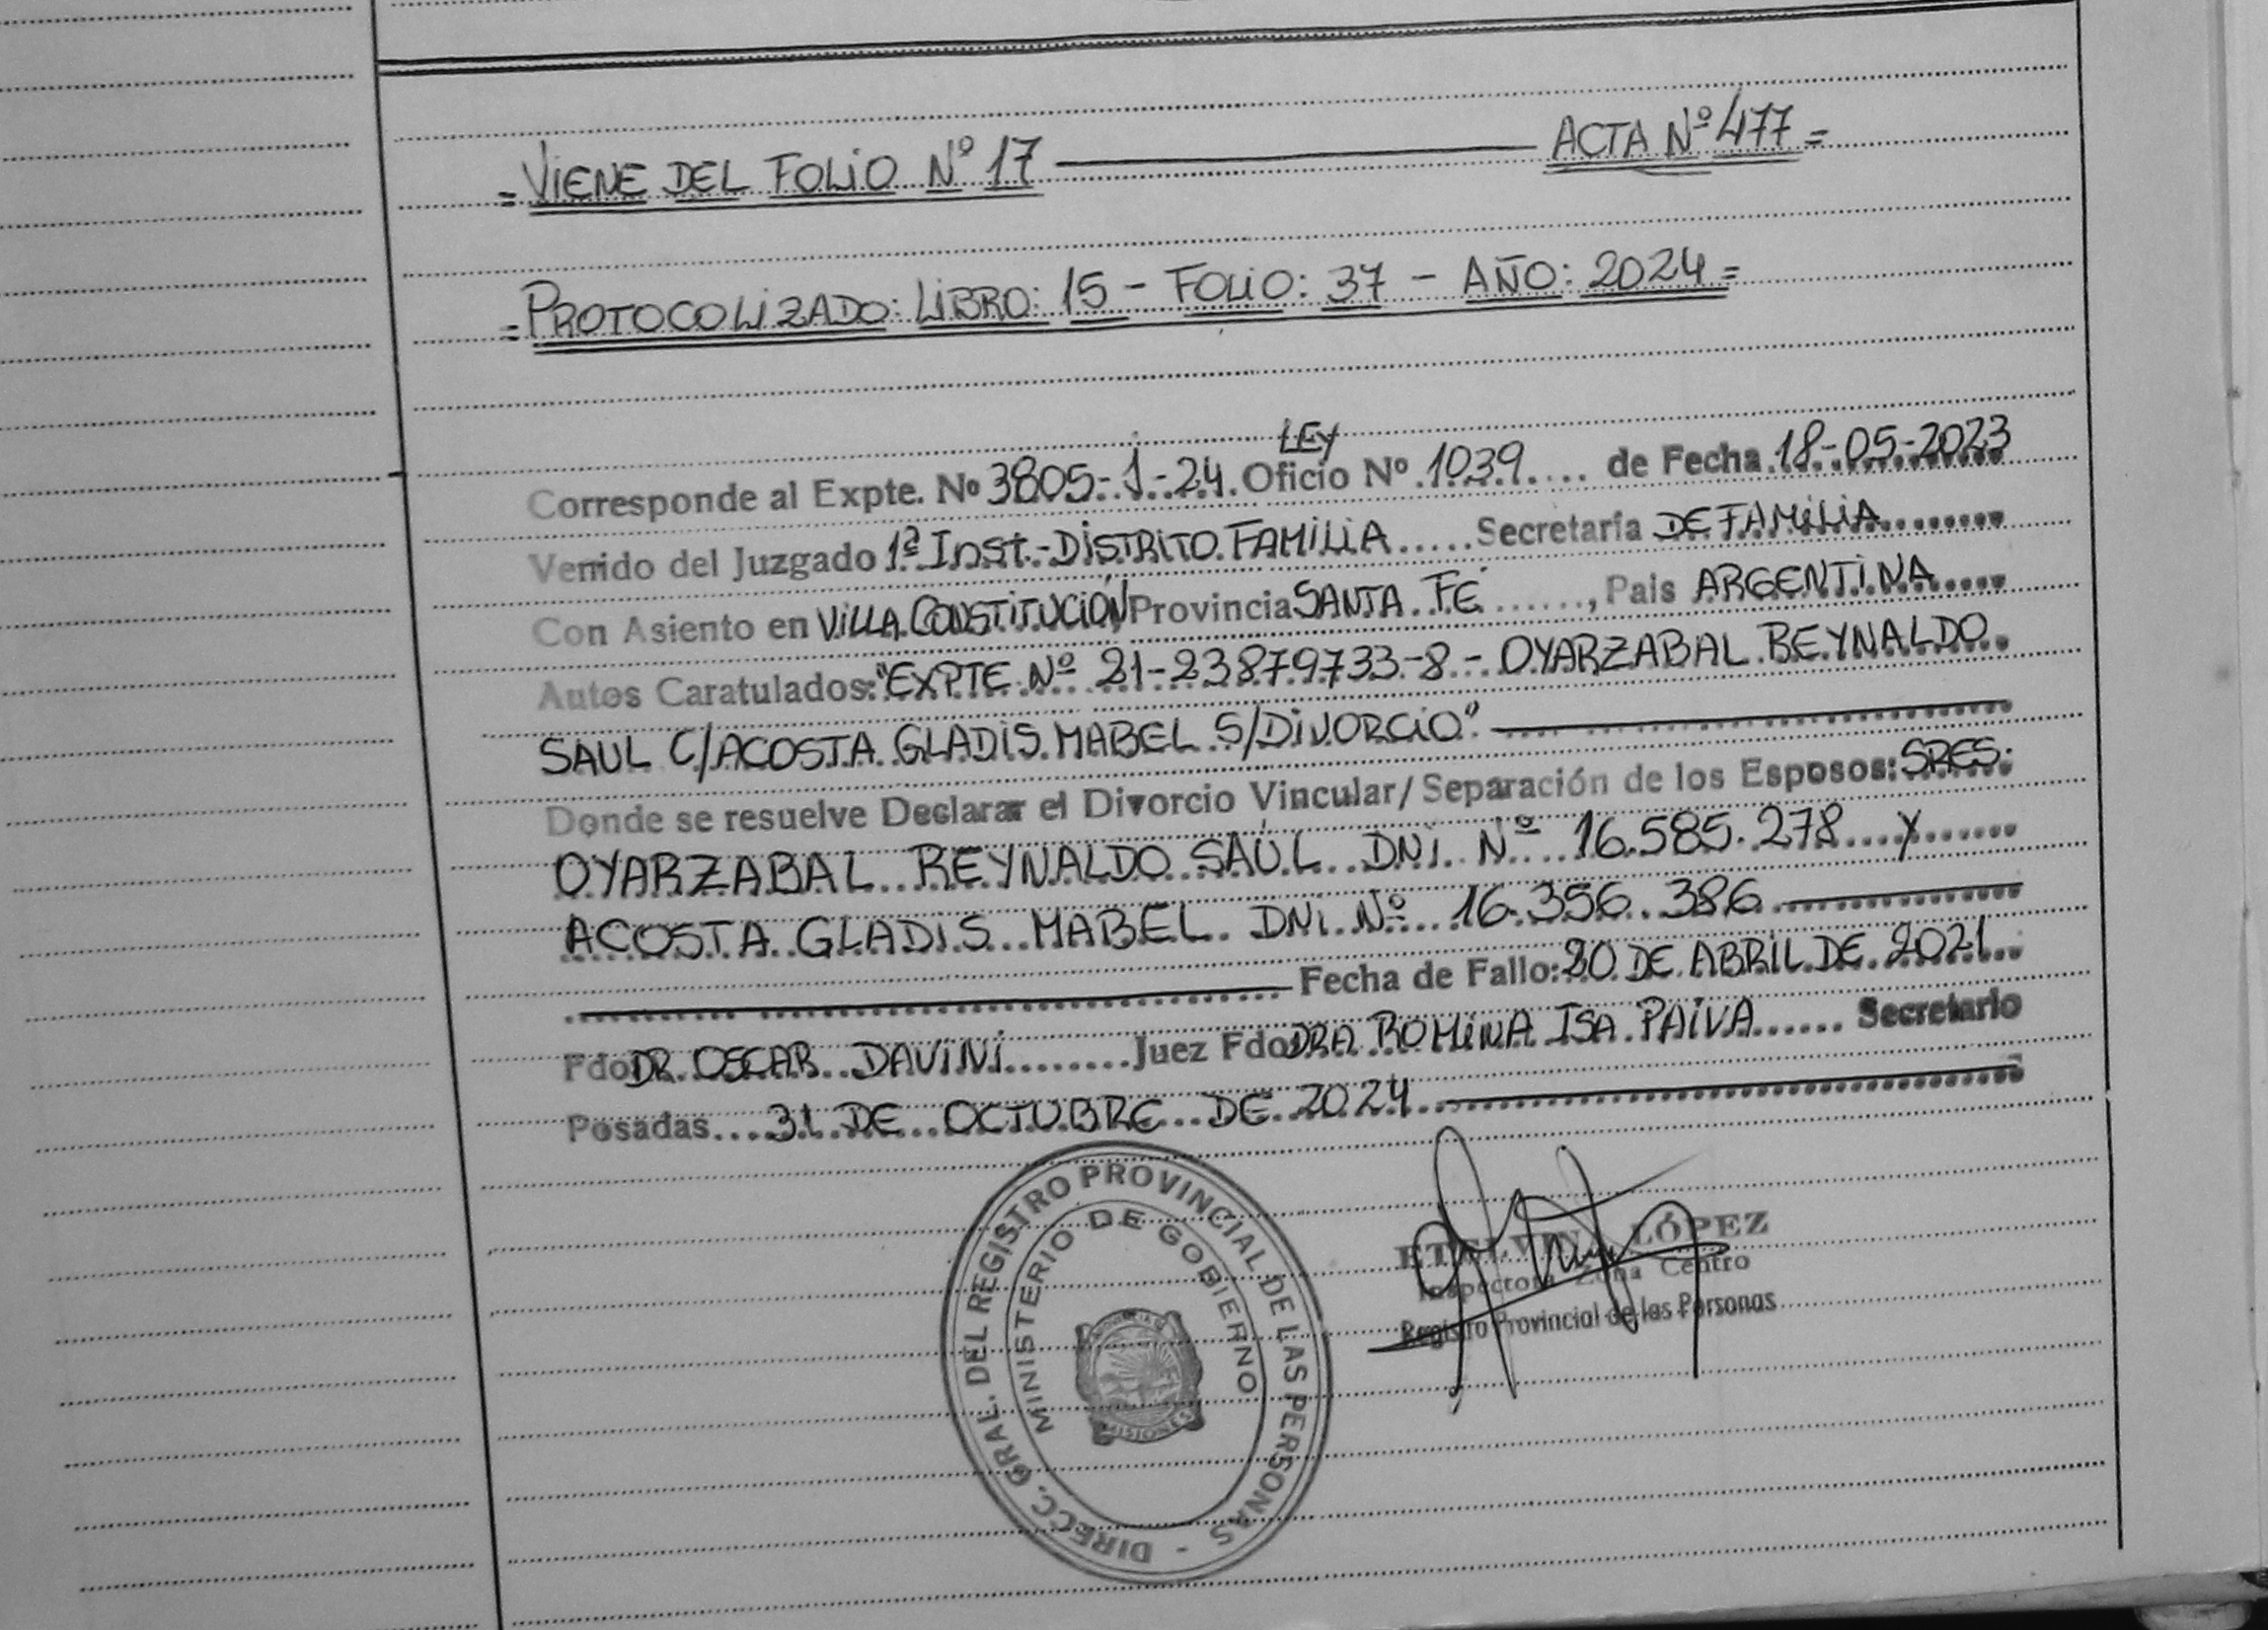 = VIENE DEL FOLIO Nº 17 ——— ACTA Nº 477 =
= PROTOCOLIZADO: LIBRO: 15 - FOLIO: 37 - AÑO: 2024 =
LEY
Corresponde al Expte. Nº 3805-J-24. Oficio Nº 1039.... de Fecha 18-05-2023
Venido del Juzgado 1ª Inst.-DISTRITO FAMILIA.....Secretaría DE FAMILIA
Con Asiento en VILLA CONSTITUCIÓN Provincia SANTA FÉ ......, Pais ARGENTINA
Autos Caratulados: "EXPTE Nº 21-23879733-8 - OYARZABAL REYNALDO
SAUL C/ACOSTA GLADIS MABEL S/DIVORCIO" ———
Donde se resuelve Declarar el Divorcio Vincular/Separación de los Esposos: SRES.
OYARZABAL REYNALDO SAÚL DNI Nº 16.585.278 Y
ACOSTA GLADIS MABEL DNI Nº 16.356.386 ———
——— Fecha de Fallo: 20 DE ABRIL DE 2021
Fdo DR. OSCAR DAVINI........Juez Fdo DRA ROMINA ISA PAIVA...... Secretario
Posadas... 31 DE OCTUBRE DE 2024 ———
DIRECC. GRAL. DEL REGISTRO PROVINCIAL DE LAS PERSONAS -
MINISTERIO DE GOBIERNO
MISIONES
ETELVINA LÓPEZ
Inspectora Zona Centro
Registro Provincial de las Personas